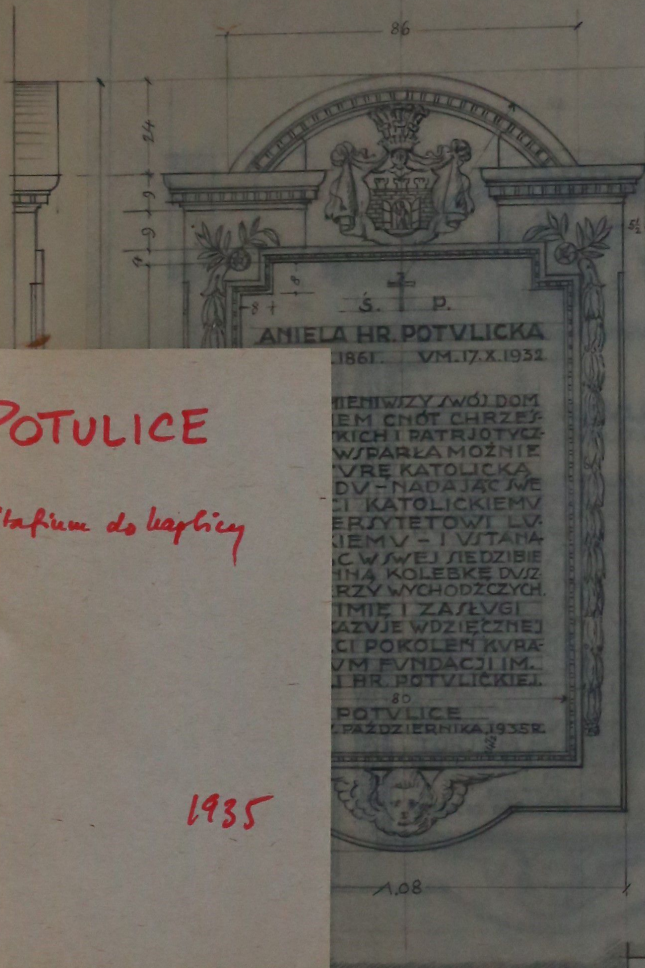 86
24
9
9
8
8
5½
Ś. P.
ANIELA HR. POTVLICKA
1861. VM. 17. X. 1932
MIENIWSZY SWÓJ DOM
IEM CNÓT CHRZEŚ-
KICH I PATRJOTYCZ-
WSPARŁA MOŻNIE
VRĘ KATOLICKĄ
DV - NADAJĄC SWE
CI KATOLICKIEMV
ERSYTETOWI LV-
KIEMV - I VSTANA-
C W SWEJ SIEDZIBIE
NNĄ KOLEBKĘ DVSZ-
RZY WYCHODŹCZYCH.
IMIĘ I ZASŁVGI
AZVJE WDZIĘCZNEJ
CI POKOLEŃ KVRA-
VM FVNDACJI IM.
I HR. POTVLICKIEJ.
80
POTVLICE
PAŹDZIERNIKA, 1935 R.
1.08
POTULICE
itafium do kaplicy
1935